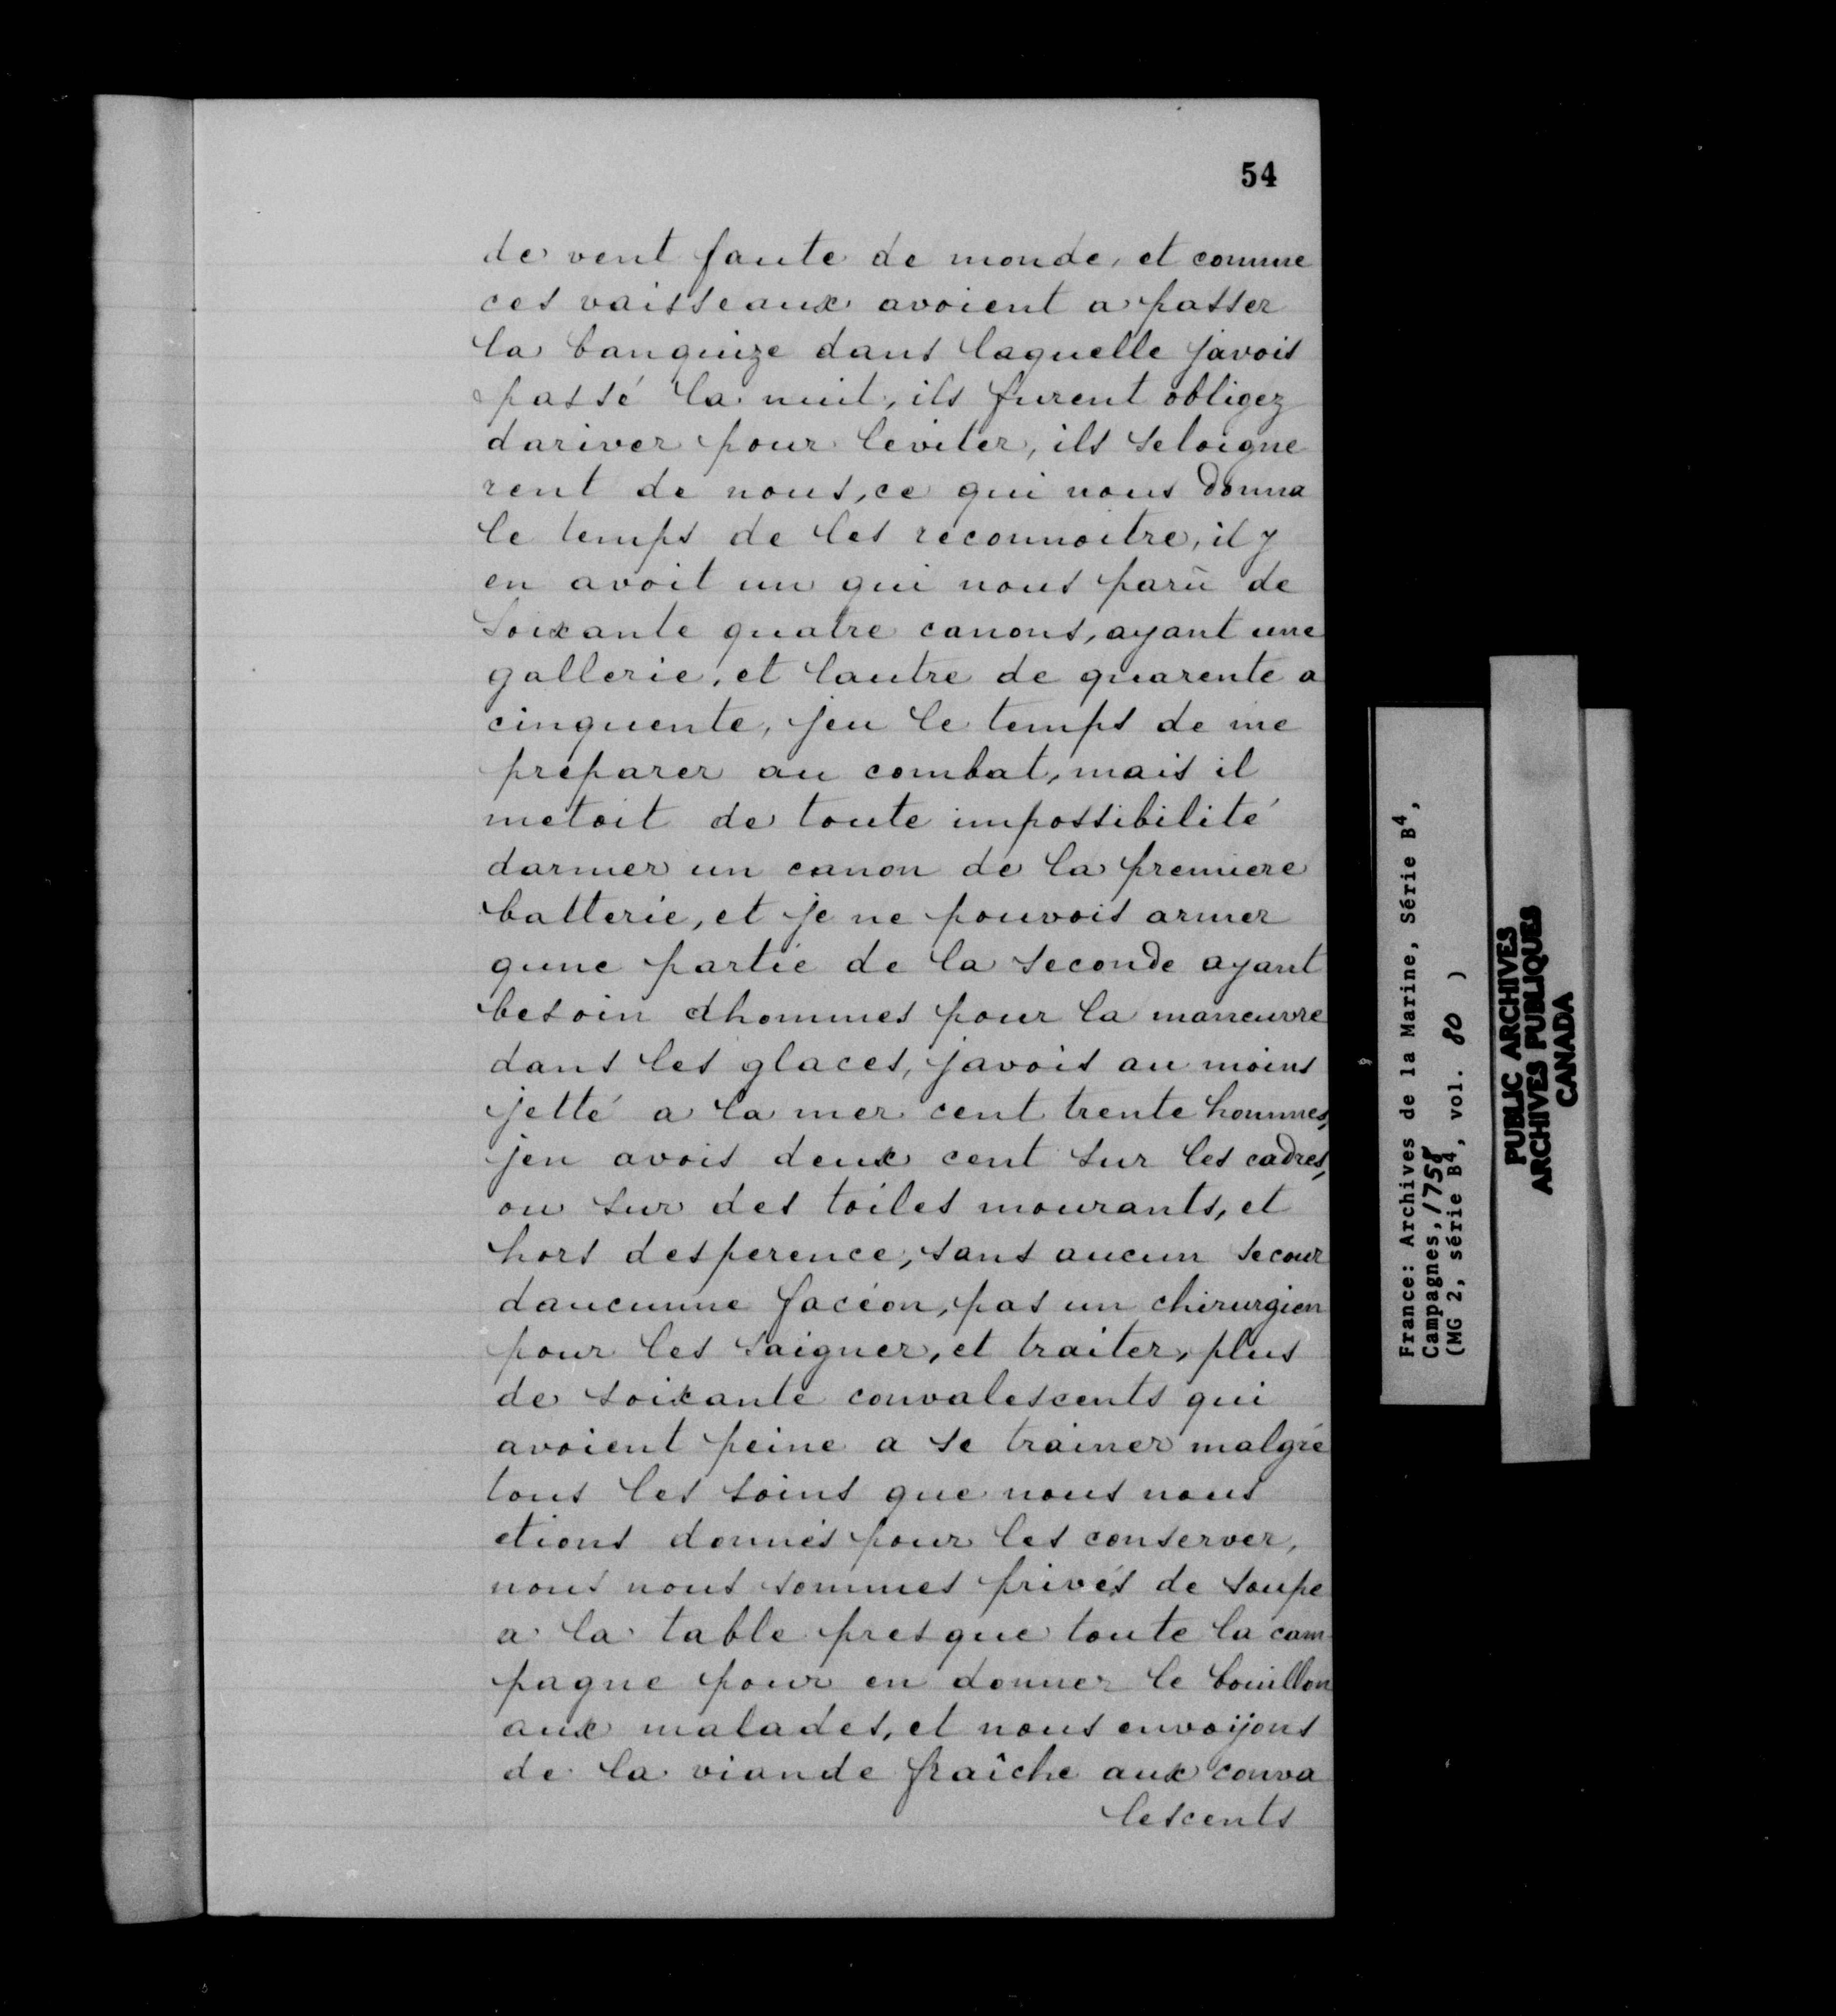 54
de vent faute de monde, et comme
ces vaisseaux avoient a passer
la banquize dans laquelle javois
passé la nuit, ils furent obligez
dariver pour leviter, ils seloigne
rent de nous, ce qui nous donna
le temps de les reconnoitre, il y
en avoit un qui nous parû de
soixante quatre canons, ayant une
gallerie, et lautre de quarente a
cinquente, jeu le temps de me
préparer au combat, mais il
metoit de toute impossibilité
darmer un canon de la premiere
batterie, et je ne pouvois armer
qune partie de la seconde ayant
besoin dhommes pour la maneuvre
dans les glaces, javois au moins
jetté a la mer cent trente hommes,
jen avois deux cent sur les cadres,
ou sur des toiles mourants, et
hors desperence, sans aucun secour
daucunne faceon, pas un chirurgien
pour les saigner, et traiter, plus
de soixante convalescents qui
avoient peine a se trainer malgré
tous les soins que nous nous
etions donnés pour les conserver,
nous nous sommes privés de soupe
a la table presque toute la cam
pagne pour en donner le bouillon
aux malades, et nous envoijons
de la viande fraîche aux conva
lescents
France: Archives de la Marine, Série B4,
Campagnes, 1758
(MG 2, série B4, vol. 80 )
PUBLIC ARCHIVES
ARCHIVES PUBLIQUES
CANADA